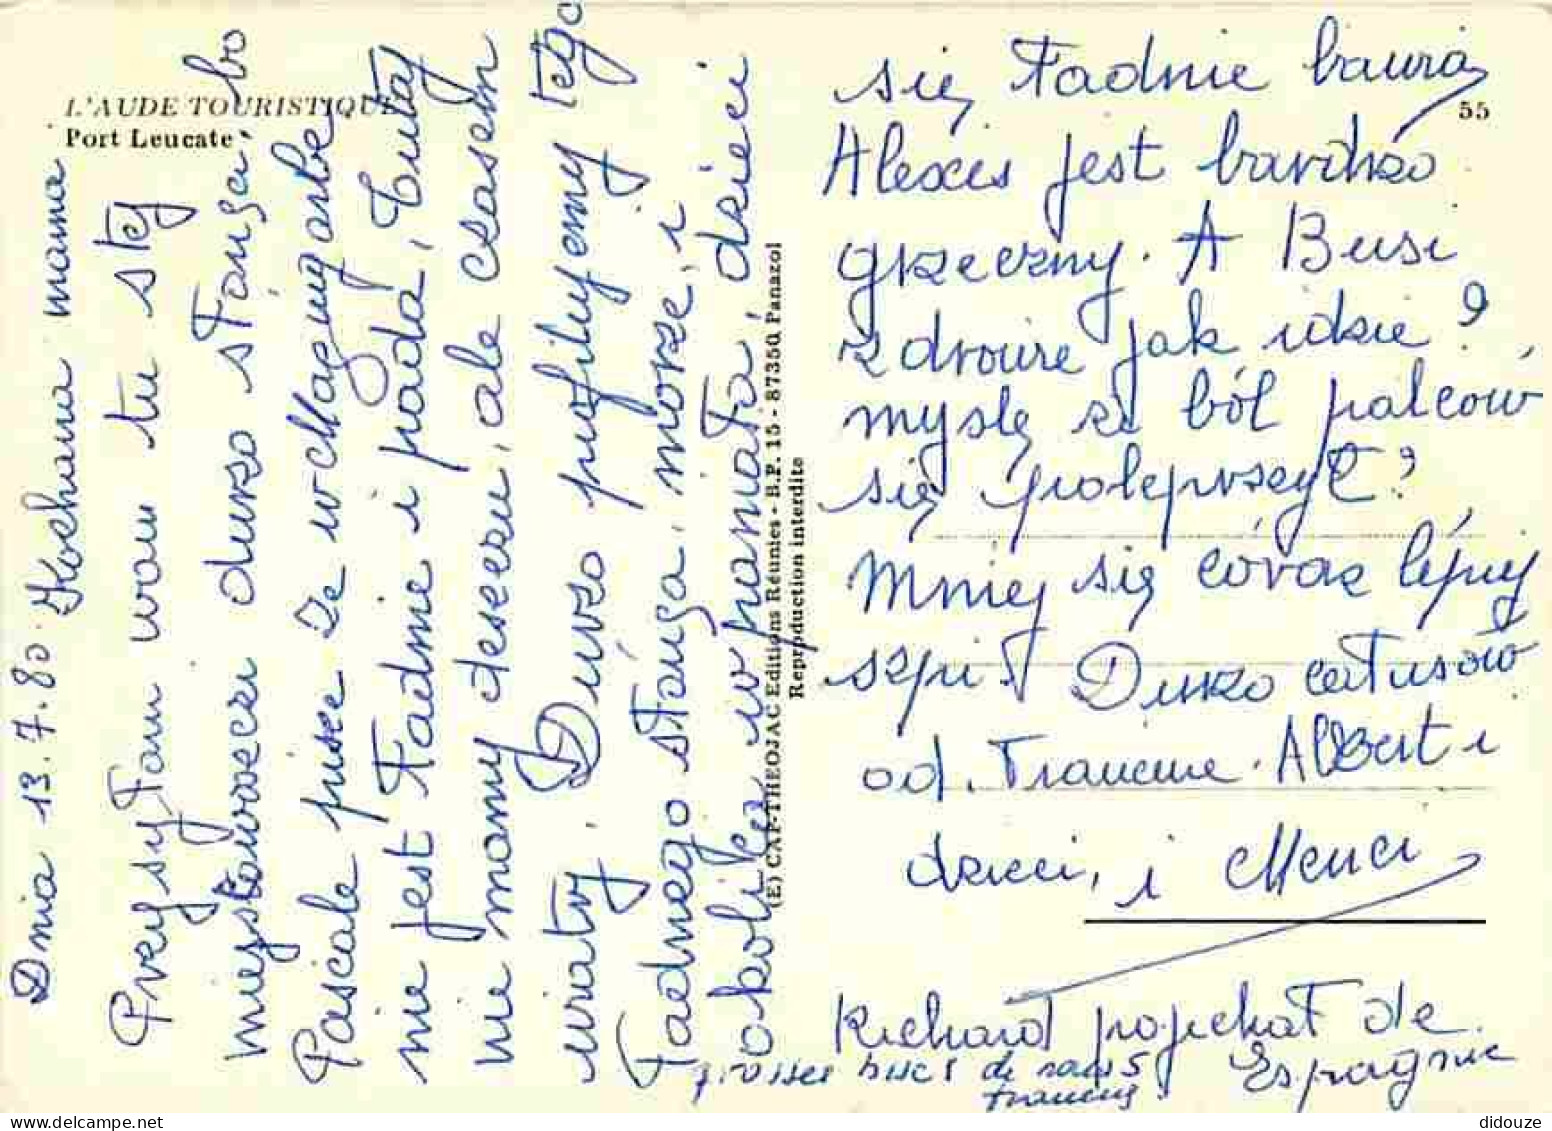 L'AUDE TOURISTIQUE
Port Leucate
55
Dnia 13.7.80. Kochana mama
Przysyłam wam tu stej
miejstowosczi duzso słonsca, bo
Pascale pisze ze w chłagmgarbe
nie jest ładnie i pada, tutaj
nie mamy deseszu, ale czasem
wiatr. Duzso profitujemy tego
ładnego słonsca, morze, i
okolica wspaniała, dzieci
(E) CAP-THEOJAC Editions Réunies - B.P. 15 - 87350 Panazol
Reproduction interdite
się ładnie bawią
Alexis jest bardzso
grzeczny. A Busi
zdrowie jak idzie?
myslę ze ból palców
się polepszył?
Mniej się coraz lépiej
szpi. Duszo całusów
od. Francine. Albert i
dzieci, i Menci
Richard pojechał de
Espagnie
grosses bises de nous 5
francine